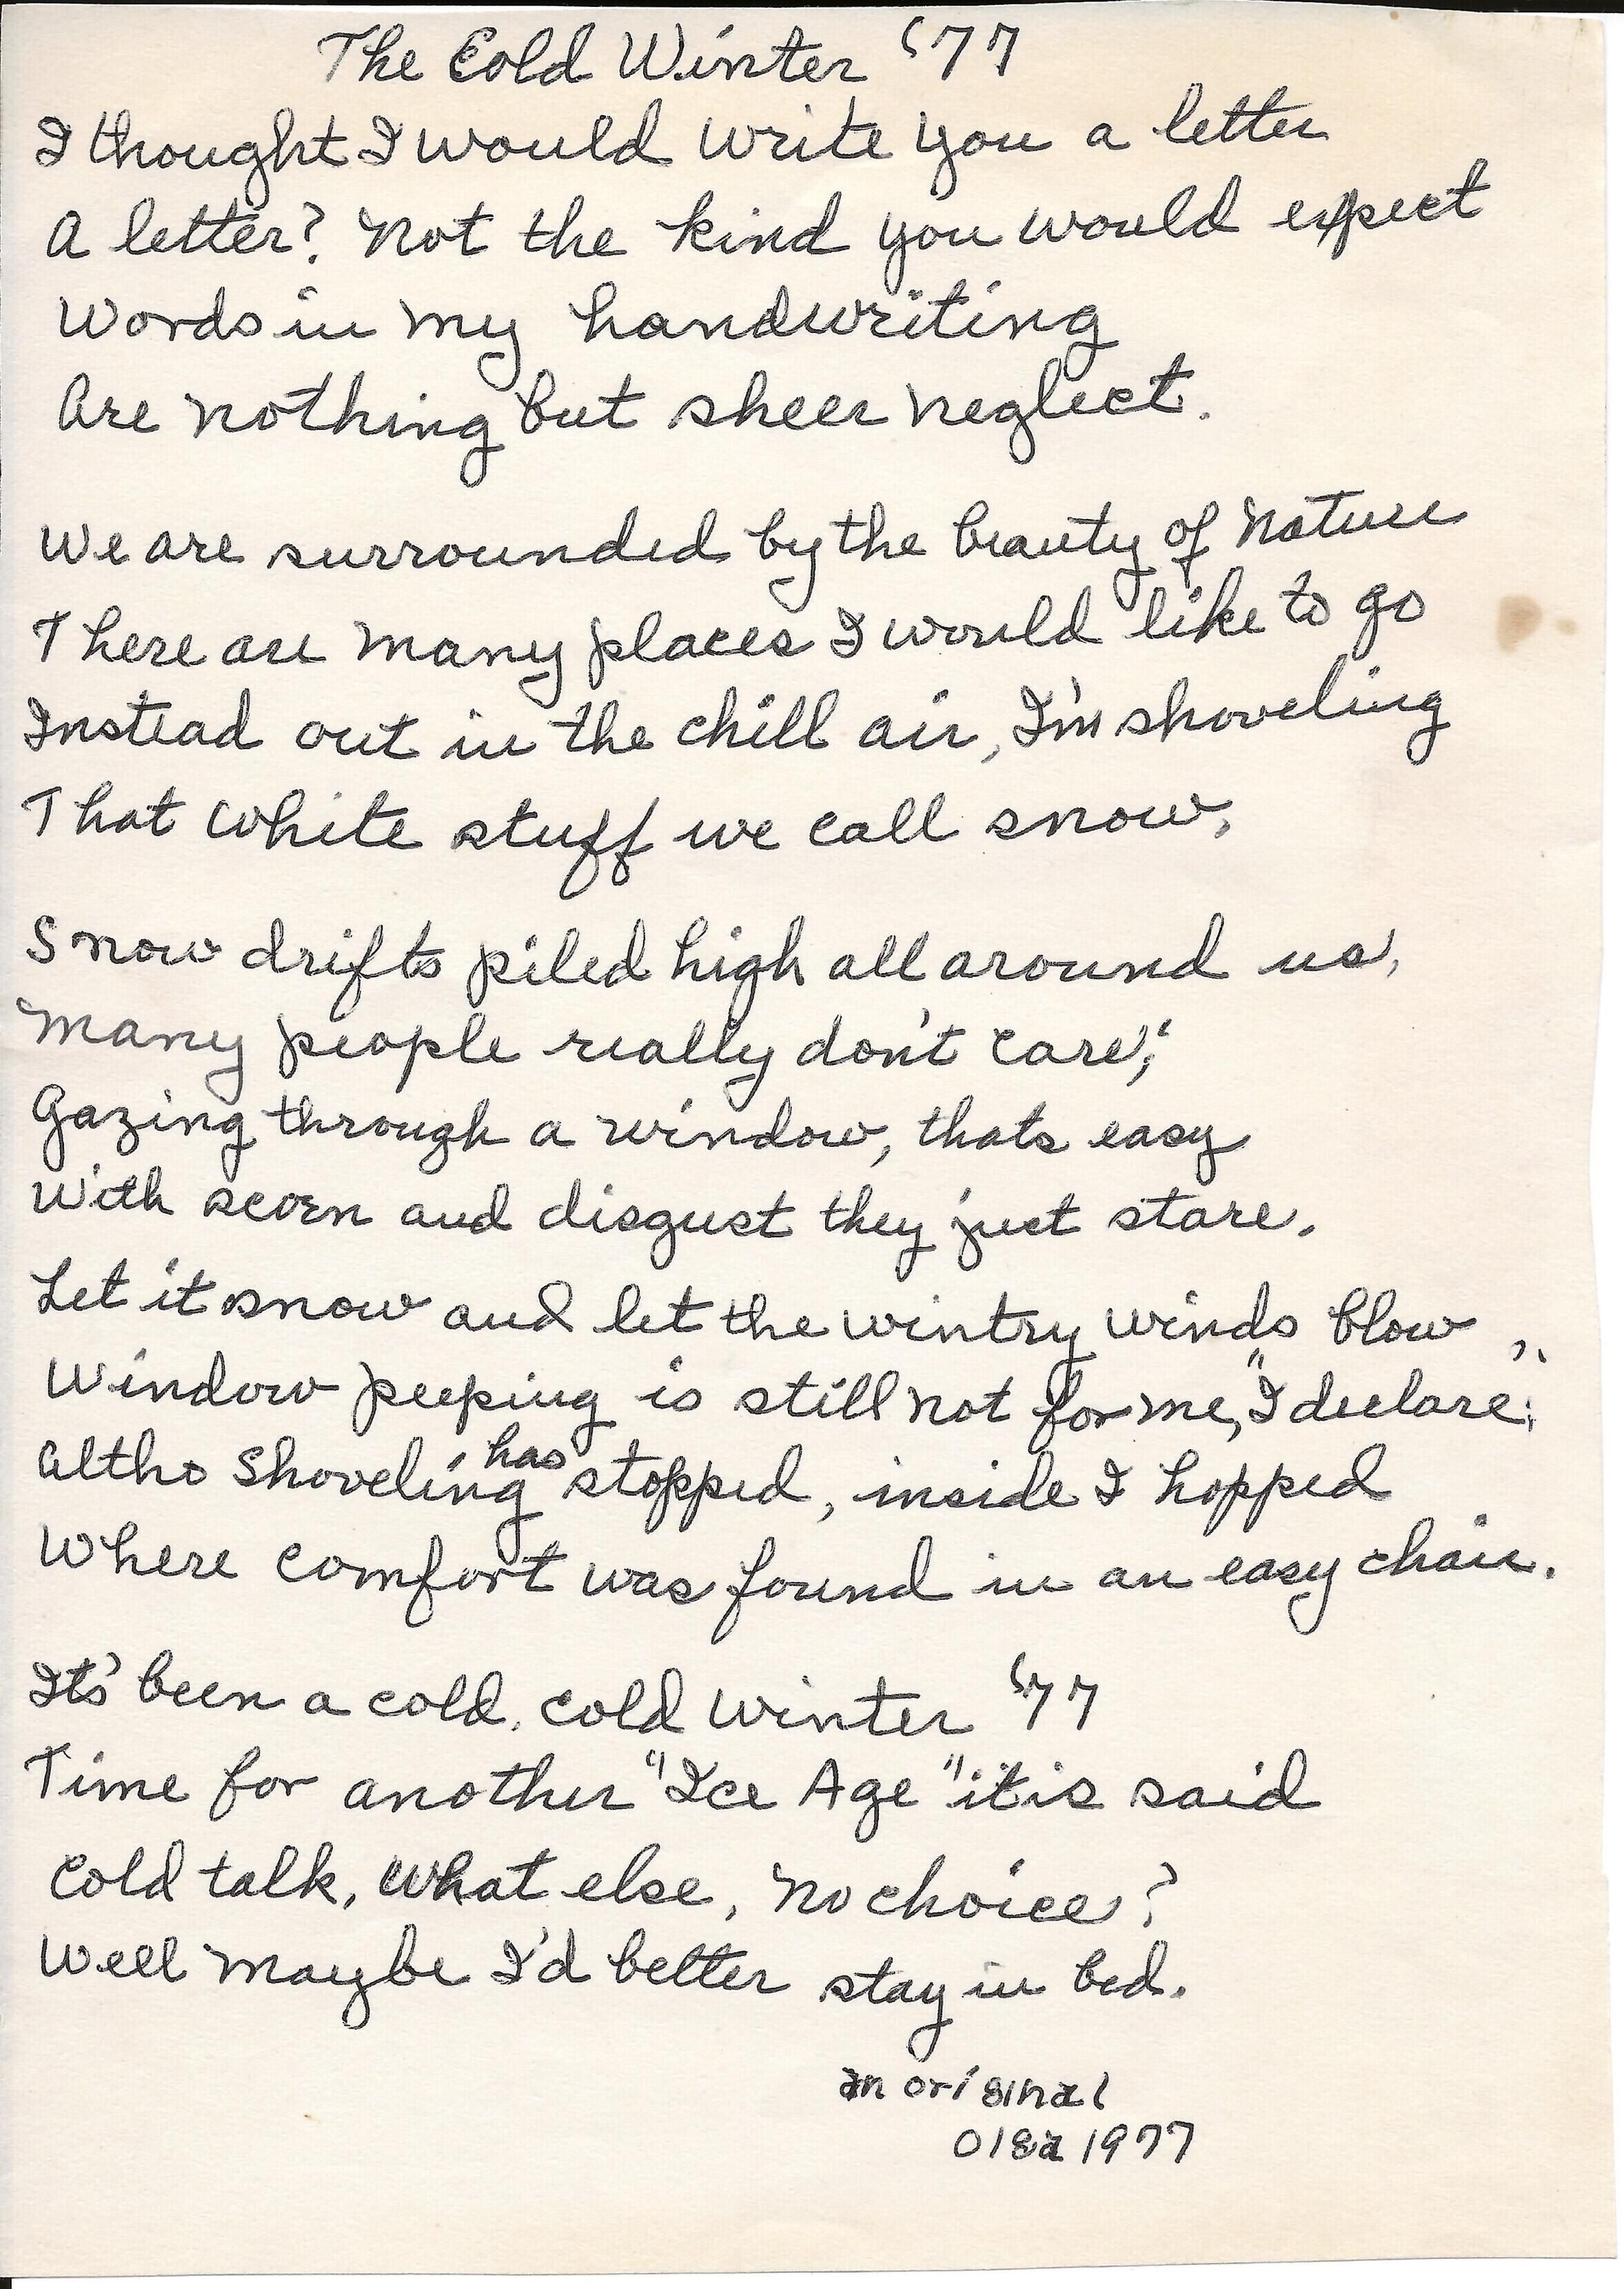 The Cold Winter '77
I thought I would write you a letter
A letter? Not the kind you would expect
Words in my handwriting
Are nothing but sheer neglect.
We are surrounded by the beauty of Nature
There are many places I would like to go
Instead out in the chill air, I'm shoveling
That white stuff we call snow,
Snow drifts piled high all around us,
Many people really don't care;
Gazing through a window, thats easy
With scorn and disgust they just stare.
Let it snow and let the wintry winds blow,
Window peeping is still not for me, "I declare;"
Altho shoveling has stopped, inside I hopped
Where comfort was found in an easy chair.
It's been a cold, cold winter '77
Time for another "Ice Age" it is said
Cold talk, What else, No choice?
Well maybe I'd better stay in bed.
an original
Olga 1977